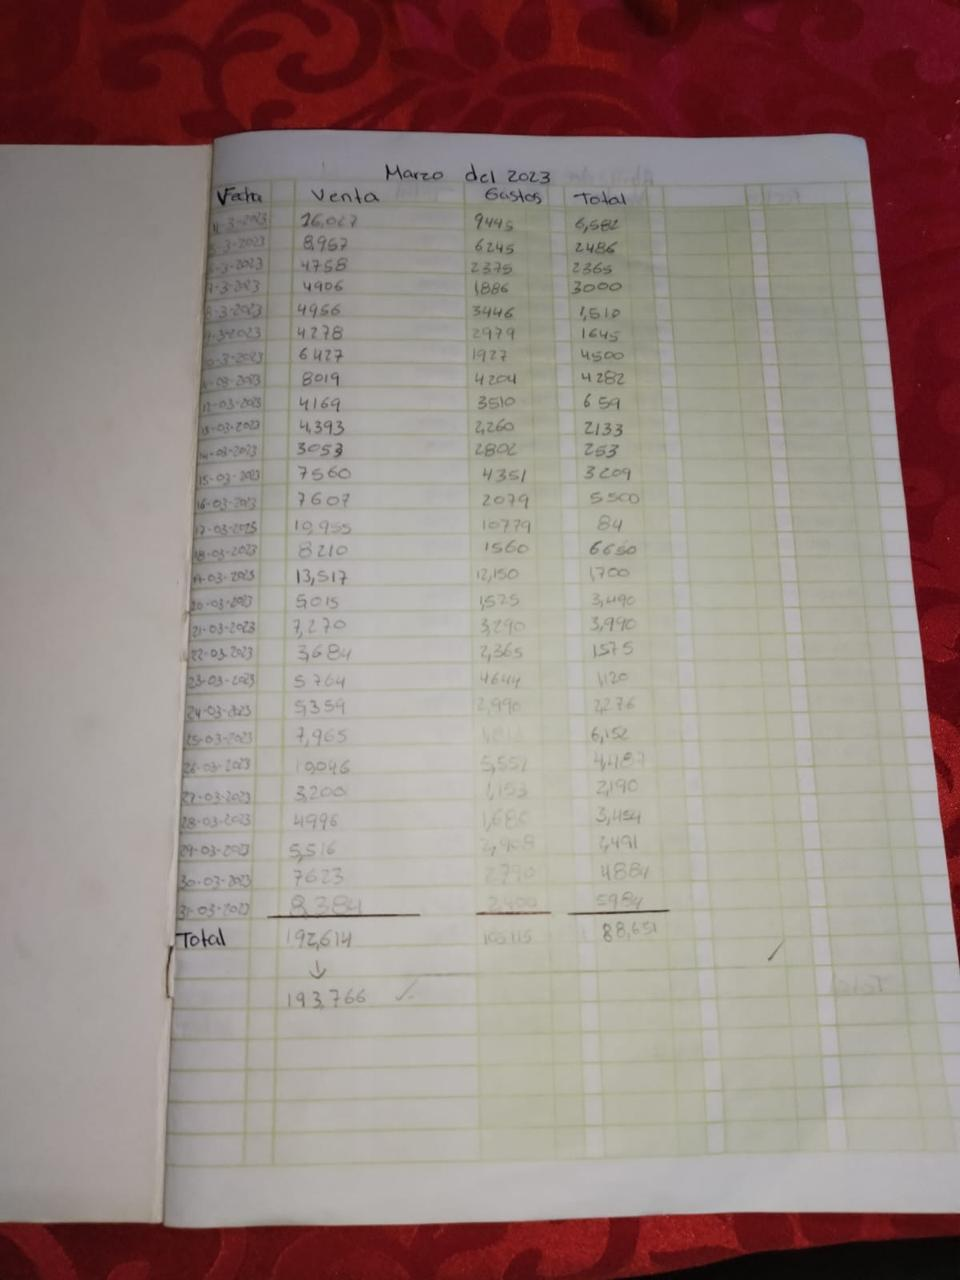 Marzo del 2023
Fecha Venta Gastos Total
4-3-2023 16,027 9445 6,582
5-3-2023 8,957 6245 2486
6-3-2023 4758 2375 2365
7-3-2023 4906 1886 3000
8-3-2023 4956 3446 1,510
9-3-2023 4278 2979 1645
10-3-2023 6427 1927 4500
11-03-2023 8019 4204 4282
12-03-2023 4169 3510 659
13-03-2023 4,393 2,260 2133
14-03-2023 3053 2802 253
15-03-2023 7560 4351 3209
16-03-2023 7607 2079 5500
17-03-2023 10,955 10779 84
18-03-2023 8210 1560 6650
19-03-2023 13,517 12,150 1,700
20-03-2023 5,015 1,525 3,490
21-03-2023 7,270 3,290 3,990
22-03-2023 3,684 2,365 1575
23-03-2023 5764 4644 1,120
24-03-2023 5,359 2,990 2,276
25-03-2023 7,965 6,152
26-03-2023 10,046 5,552 4,487
27-03-2023 3,200 1,153 2,190
28-03-2023 4996 1,686 3,454
29-03-2023 5,516 2,908 2,491
30-03-2023 7623 2790 4884
31-03-2023 8,384 2,400 5984
Total 192,614 88,651
193,766